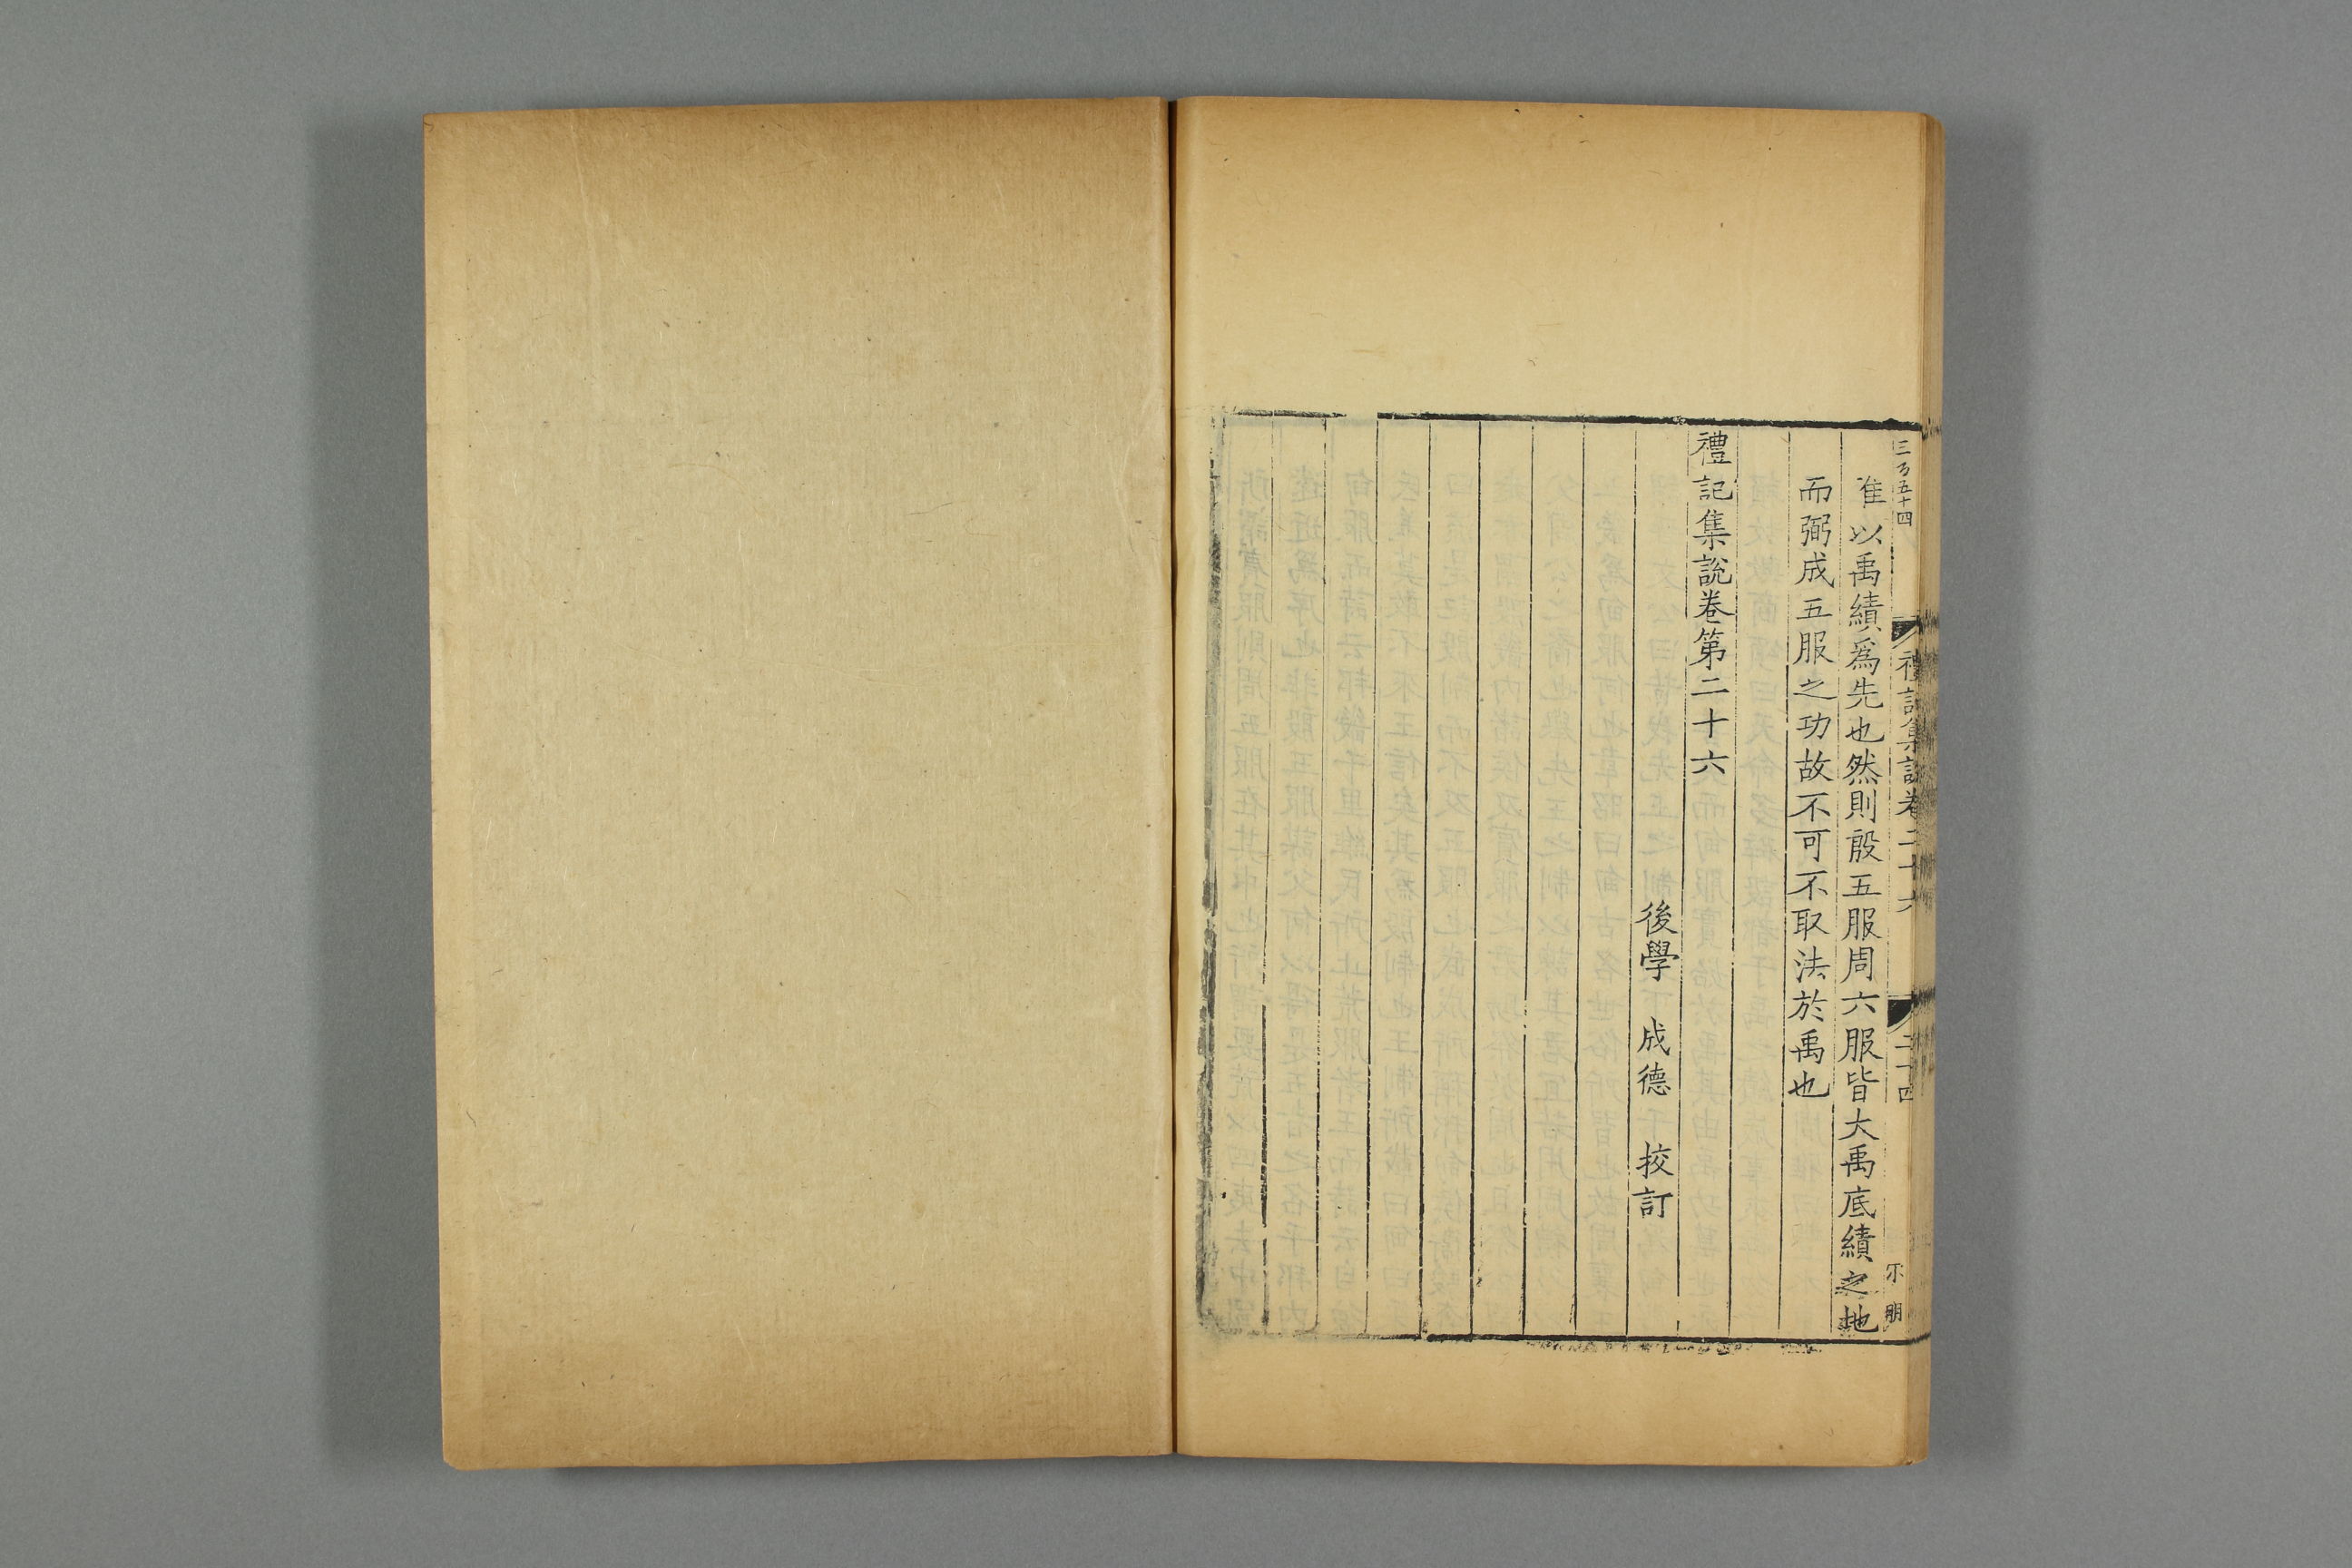 三百五十四
禮記集說卷二十六
二十四
朋
隹以禹績爲先也然則殷五服周六服皆大禹底績之地
而弼成五服之功故不可不取法於禹也
禮記集說卷第二十六
後學 成德 挍訂